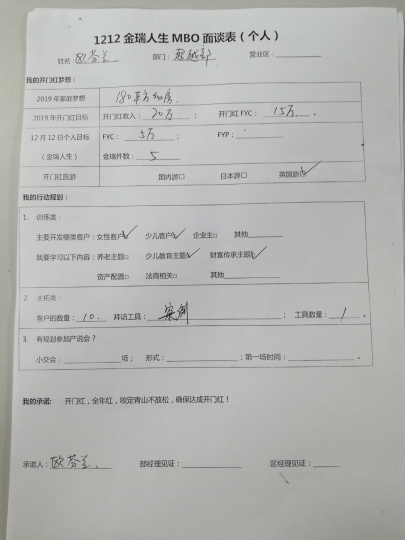 1212 金瑞人生 MBO 面谈表（个人）
姓名：欧芬兰 部门：超越部 营业区：
我的开门红梦想：
2019 年家庭梦想
2019 年开门红目标 开门红收入：20万； 开门红 FYC：15万。
12 月 12 日个人目标（金瑞人生） FYC：5万； FYP：；
金瑞件数：5
开门红旅游 国内游□ 日本游□ 英国游☑
我的行动规划：
1. 训练类：
主要开发哪类客户：女性客户☑ 少儿客户☑ 企业主□ 其他
我要学习以下内容：养老主题□ 少儿教育主题☑ 财富传承主题☑
资产配置□ 法商相关□ 其他
2. 主拓类：
客户的数量：10. 拜访工具：案例； 工具数量：1。
3. 有规划参加产说会？
小交会：场； 形式：；第一场时间：。
我的承诺： 开门红，全年红，咬定青山不放松，确保达成开门红！
承诺人：欧芬兰 部经理见证： 区经理见证：